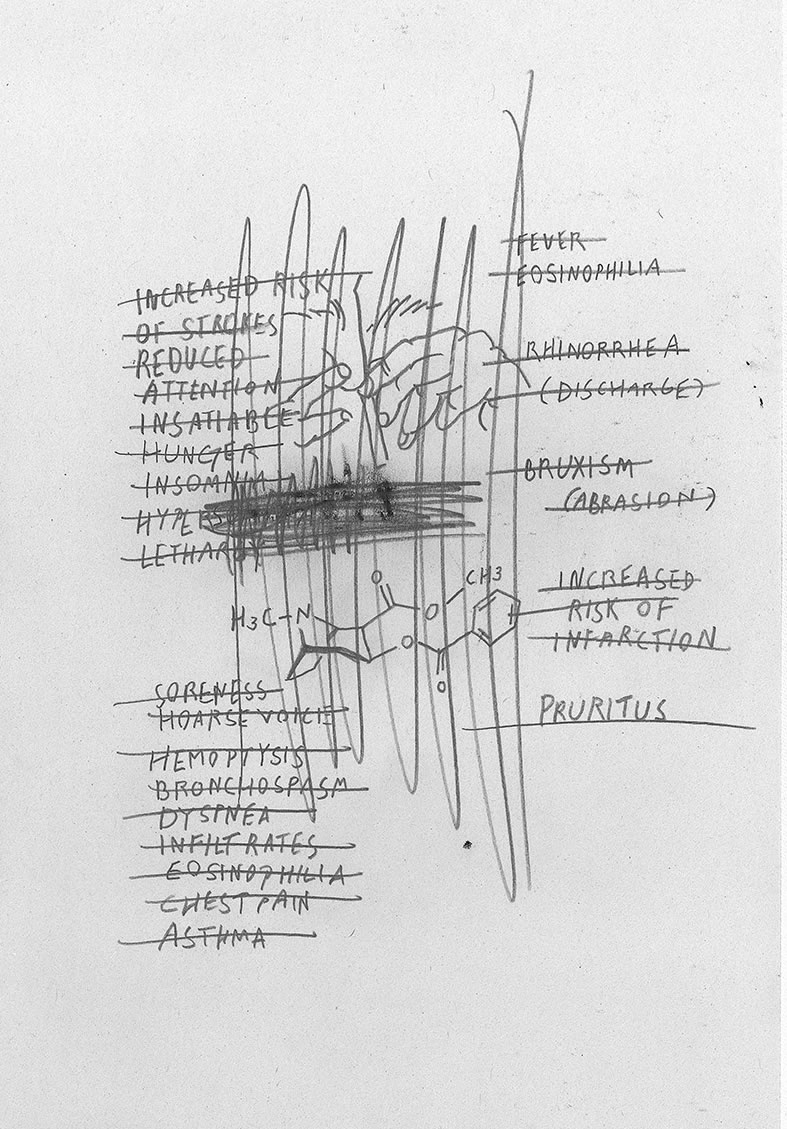 INCREASED RISK
OF STROKES
REDUCED
ATTENTION
INSATIABLE
HUNGER
INSOMNIA
LETHARGY
FEVER
EOSINOPHILIA
RHINORRHEA
(DISCHARGE)
BRUXISM
(ABRASION)
INCREASED
RISK OF
INFARCTION
PRURITUS
O CH3
H3C-N O
O
O
SORENESS
HOARSE VOICE
HEMOPTYSIS
BRONCHOSPASM
DYSPNEA
INFILTRATES
EOSINOPHILIA
CHEST PAIN
ASTHMA